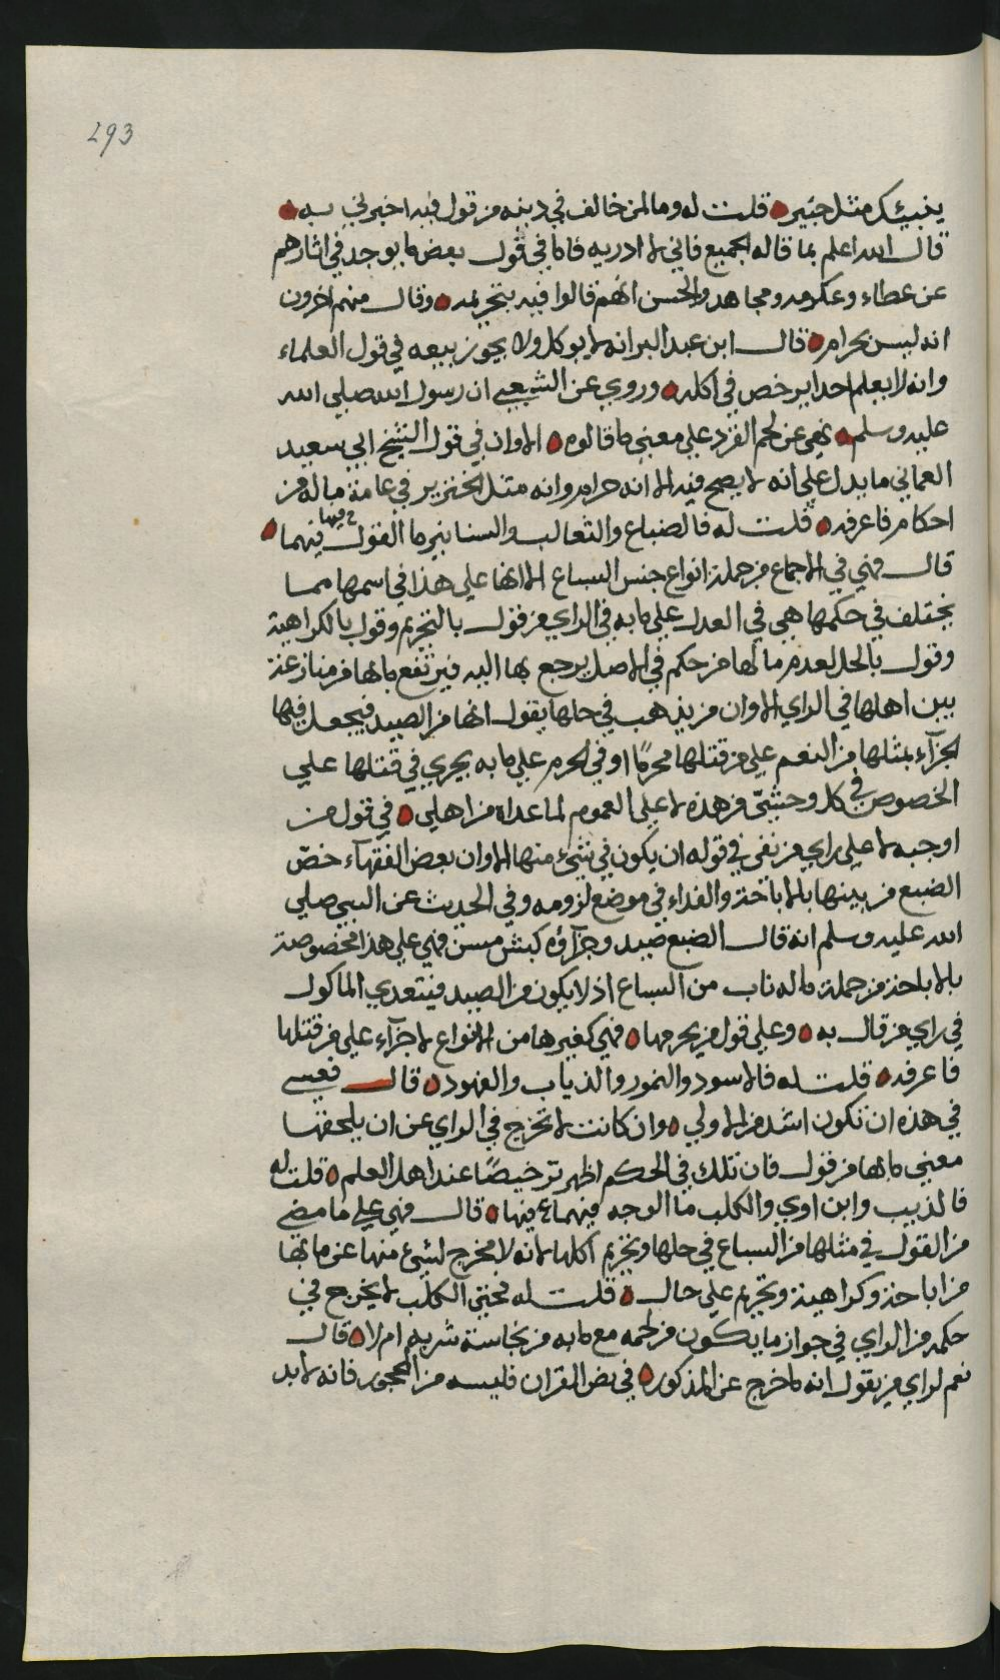 293
ينبيك مثل خبير قلت له وما لمن خالف في دينه من قول فيه اخبرني به
قال الله اعلم بما قاله الجميع فاني لا ادريه فاما في قول بعض ما يوجد في اثارهم
عن عطاء وعكرمه ومجاهد والحسن انهم قالوا فيه بتحريمه وقال منهم اخرون
انه ليس بحرام قال ابن عبد البر انه لا يوكل ولا يجوز بيعه في قول العلماء
وانه لا يعلم احدا يرخص في اكله وروي عن الشعبي ان رسول الله صلى الله
عليه وسلم نهى عن لحم القرد على معنى ما قالوه الا وان في قول الشيخ ابي سعيد
العماني ما يدل على انه لا يصح فيه الا انه حرام وانه مثل الخنزير في عامة ما له من
احكام فاعرفه قلت له فالضباع والثعالب والسنانير ما القول فيهما خ فيها
قال فهي في الاجماع من جملة انواع جنس السباع الا انها على هذا في اسمها مما
يختلف في حكمها هي في العدل على ما به في الراي من قول بالتحريم وقول بالكراهية
وقول بالحل لعدم ما لها من حكم في الاصل يرجع بها اليه فيرتفع ما لها من منازعة
بين اهلها في الراي الا وان من يذهب في حلها يقول انها من الصيد فيجعل فيها
الجزآء بمثلها من النعم على من قتلها محرمًا او في الحرم على ما به يجري في قتلها على
الخصوص في كل وحشيّ من هذه لا على العموم لما عداه من اهلي في قول من
اوجبه لا على راي من نفى في قوله ان يكون في شيء منها الا وان بعض الفقهآء خصّ
الضبع من بينها بالاباحة والفداء في موضع لزومه وفي الحديث عن النبي صلى
الله عليه وسلم انه قال الضبع صيد وجزآؤه كبش مسن فهي على هذا مخصوصة
بالاباحة من جملة ما له ناب من السباع اذ لا يكون من الصيد فيتعدى الماكول
في راي من قال به وعلى قول من يحرمها فهي كغيرها من الانواع لا جزآء على من قتلها
فاعرفه قلت له فالاسود والنمور والذياب والفهود قال فعسى
في هذه ان تكون اشد من الاولى وان كانت لا تخرج في الراي عن ان يلحقها
معنى ما لها من قول فان تلك في الحكم اظهر ترخيصًا عند اهل العلم قلت له
فالذيب وابن اوى والكلب ما الوجه فيهما ع فيها قال فهي على ما مضى
من القول في مثلها من السباع في حلها وتحريم اكلها لانه لا مخرج لشيء منها عن ما بها
من اباحة وكراهية وتحريم على حال قلت له فحتى الكلب لا يخرج في
حكمه من الراي في جواز ما يكون من لحمه مع ما به من نجاسة شربه ام لا قال
نعم لراي من يقول انه ما خرج عن المذكور في نص القران فليسه من المحجور فانه لابد